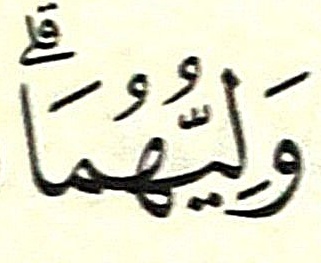 وَلِيُّهُمَاۗ